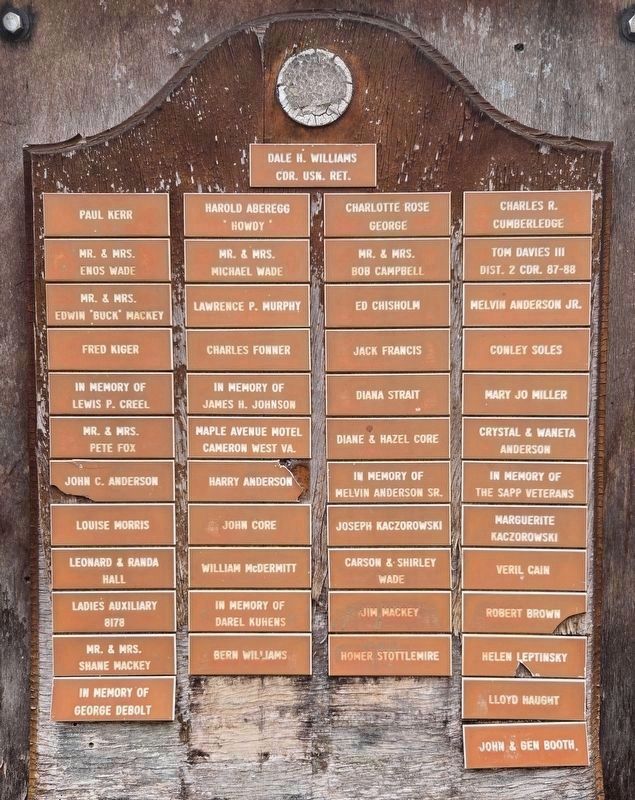 DALE H. WILLIAMS
CDR. USN. RET.
PAUL KERR
MR. & MRS.
ENOS WADE
MR. & MRS.
EDWIN "BUCK" MACKEY
FRED KIGER
IN MEMORY OF
LEWIS P. CREEL
MR. & MRS.
PETE FOX
JOHN C. ANDERSON
LOUISE MORRIS
LEONARD & RANDA
HALL
LADIES AUXILIARY
8178
MR. & MRS.
SHANE MACKEY
IN MEMORY OF
GEORGE DEBOLT
HAROLD ABEREGG
"HOWDY"
MR. & MRS.
MICHAEL WADE
LAWRENCE P. MURPHY
CHARLES FONNER
IN MEMORY OF
JAMES H. JOHNSON
MAPLE AVENUE MOTEL
CAMERON WEST VA.
HARRY ANDERSON
JOHN CORE
WILLIAM McDERMITT
IN MEMORY OF
DAREL KUHENS
BERN WILLIAMS
CHARLOTTE ROSE
GEORGE
MR. & MRS.
BOB CAMPBELL
ED CHISHOLM
JACK FRANCIS
DIANA STRAIT
DIANE & HAZEL CORE
IN MEMORY OF
MELVIN ANDERSON SR.
JOSEPH KACZOROWSKI
CARSON & SHIRLEY
WADE
JIM MACKEY
HOMER STOTTLEMIRE
CHARLES R.
CUMBERLEDGE
TOM DAVIES III
DIST. 2 CDR. 87-88
MELVIN ANDERSON JR.
CONLEY SOLES
MARY JO MILLER
CRYSTAL & WANETA
ANDERSON
IN MEMORY OF
THE SAPP VETERANS
MARGUERITE
KACZOROWSKI
VERIL CAIN
ROBERT BROWN
HELEN LEPTINSKY
LLOYD HAUGHT
JOHN & GEN BOOTH